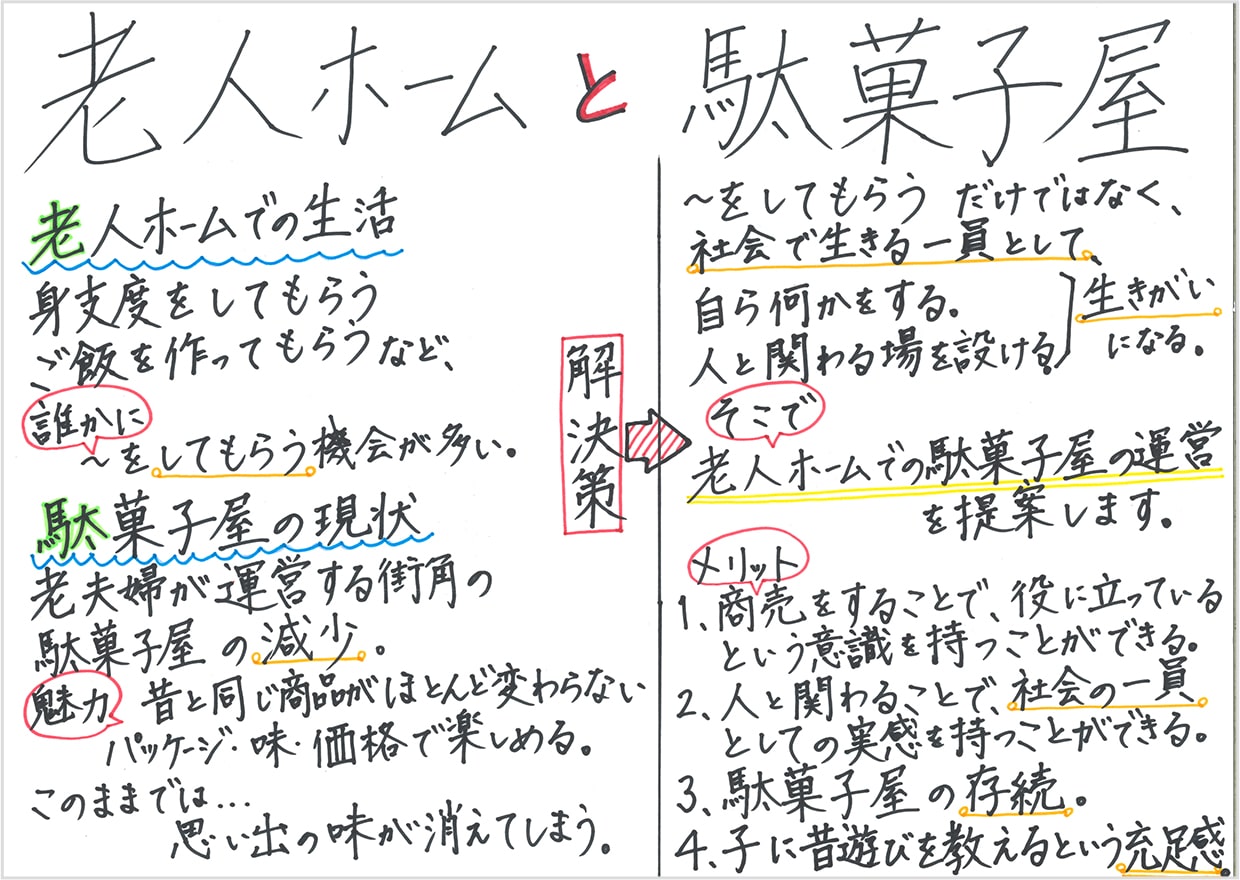 老人ホームと駄菓子屋
老人ホームでの生活
身支度をしてもらう
ご飯を作ってもらうなど、
誰かに
～をしてもらう機会が多い。
駄菓子屋の現状
老夫婦が運営する街角の
駄菓子屋の減少。
魅力 昔と同じ商品がほとんど変わらない
パッケージ・味・価格で楽しめる。
このままでは…
思い出の味が消えてしまう。
解決策
～をしてもらう だけではなく、
社会で生きる一員として、
自ら何かをする。
人と関わる場を設ける
生きがい
になる。
そこで
老人ホームでの駄菓子屋の運営
を提案します。
メリット
1、商売をすることで、役に立っている
という意識を持つことができる。
2、人と関わることで、社会の一員
としての実感を持つことができる。
3、駄菓子屋の存続。
4、子に昔遊びを教えるという充足感。